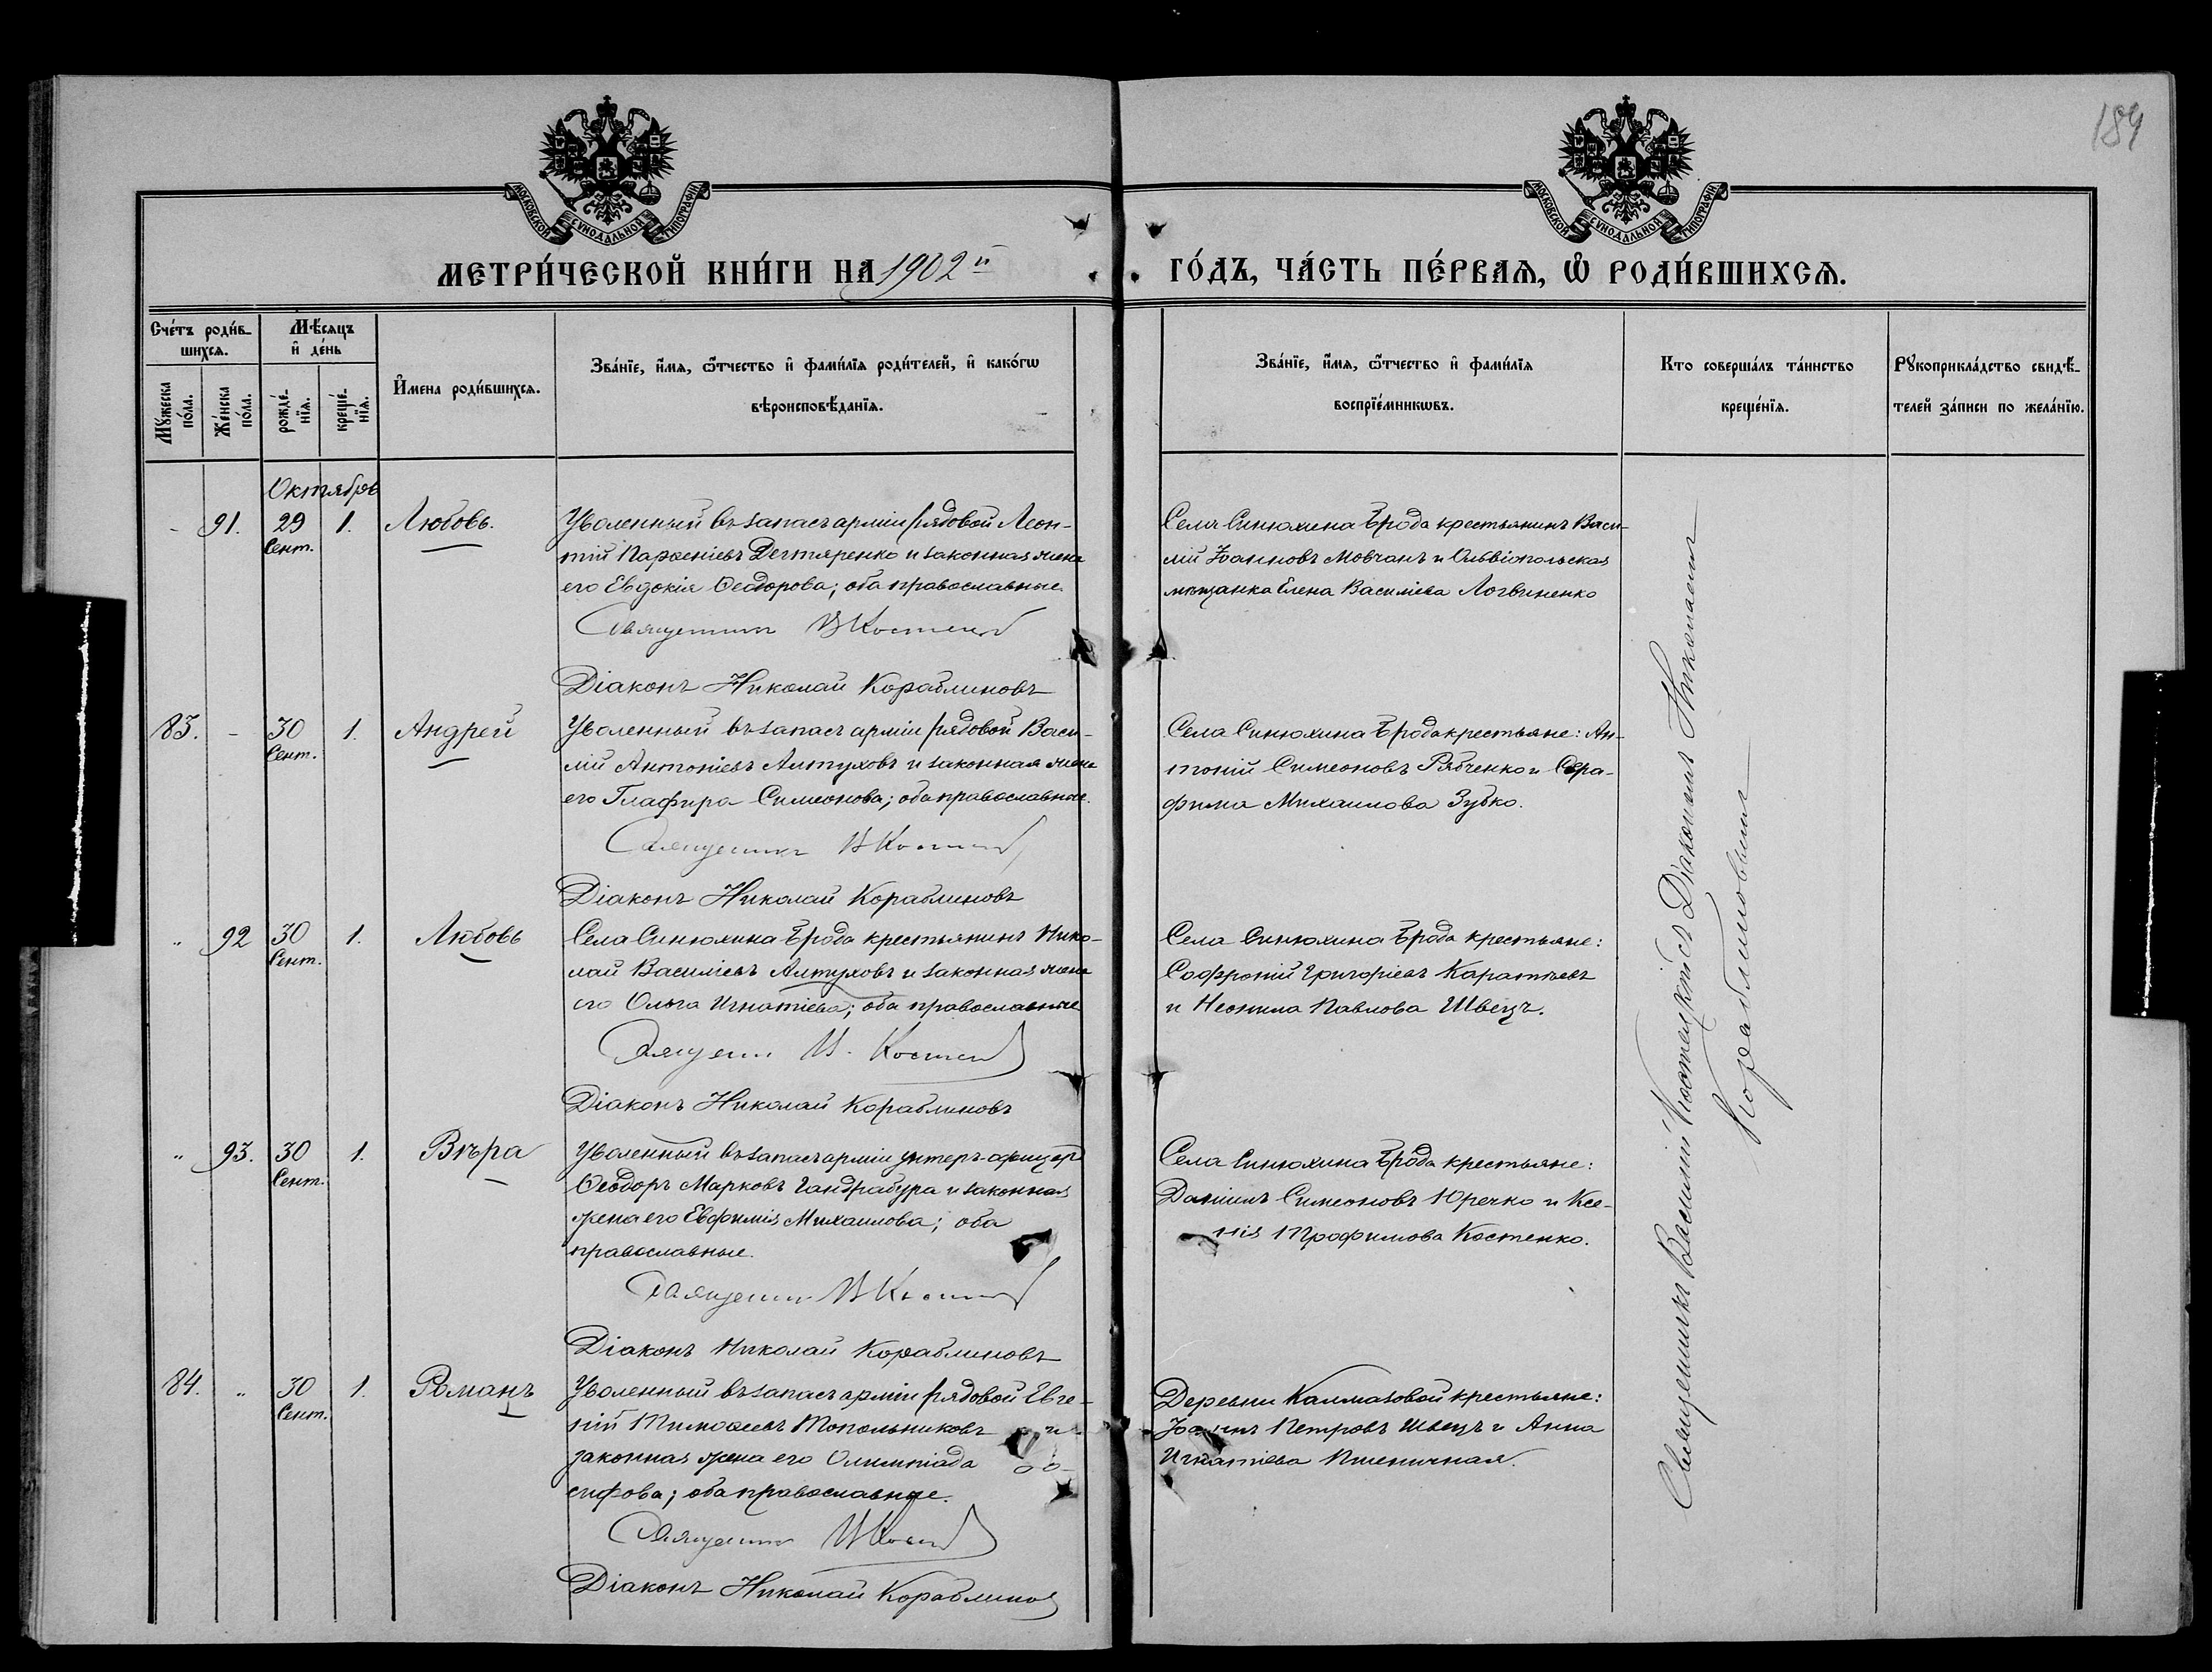 189
МОСКОВСКОЙ СУНОДАЛЬНОЙ ТИПОГРАФІИ
МОСКОВСКОЙ СУНОДАЛЬНОЙ ТИПОГРАФІИ
МЕТРИ́ЧЕСКОЙ КНИ́ГИ НА 1902 й ГО́ДЪ, ЧА́СТЬ ПЕ́РВАЯ, Ѡ РОДИ́ВШИХСЯ.
Сче́тъ роди́в-
шихся.
Мѣ́сяцъ
и҆ де́нь
Мꙋ́жеска
по́ла.
Же́нска
по́ла.
рожде́-
нїя.
креще́-
нїя.
И҆мена роди́вшихся.
Зва́нїе, и҆́мя, ѻ҆́тчество и҆ фами́лїя роди́телей, и҆ како́гѡ
вѣроисповѣ́данїя.
Зва́нїе, и҆́мя, ѻ҆́тчество и҆ фами́лїя
воспрїе́мникѡвъ.
Кто соверша́лъ та́инство
креще́нїя.
Рꙋкоприкла́дство свидѣ́-
телей за́писи по жела́нїю.
Октябрь
- 91. 29 1. Любовь.
Сент.
Уволенный въ запасъ арміи рядовой Леон-
тій Парѳеніевъ Дегтяренко и законная жена
его Евдокія Ѳеодорова; оба православные
Священникъ В Костецкій
Діаконъ Николай Кораблиновъ
Села Синюхина Брода крестьянинъ Васи-
лій Іоанновъ Мовчанъ и Ольвіопольская
мѣщанка Елена Василіева Логвиненко
83. - 30 1. Андрей
Сент.
Уволенный въ запасъ арміи рядовой Васи-
лій Антоніевъ Алтуховъ и законная жена
его Глафира Симеонова; оба православные.
Священникъ В Костецкій
Діаконъ Николай Кораблиновъ
Села Синюхина Брода крестьяне: Ан-
тоній Симеоновъ Рябченко и Сера-
фима Михаилова Зубко.
" 92 30 1. Любовь
Сент.
Села Синюхина Брода крестьянинъ Нико-
лай Василіевъ Алтуховъ и законная жена
его Ольга Игнатіева; оба православные
Священ В. Костецкій
Діаконъ Николай Кораблиновъ
Села Синюхина Брода крестьяне:
Софроній Григоріевъ Каратѣевъ
и Неонила Павлова Швецъ.
" 93. 30 1. Вѣра
Сент.
Уволенный въ запасъ арміи унтеръ-офицеръ
Ѳеодоръ Марковъ Гандрабура и законная
жена его Евфимія Михаилова; оба
православные.
Священник В Костецкій
Діаконъ Николай Кораблиновъ
Села Синюхина Брода крестьяне:
Даніилъ Симеоновъ Юречко и Ксе-
нія Трофимова Костенко.
84. " 30 1. Романъ
Сент.
Уволенный въ запасъ арміи рядовой Евге-
ній Тимоѳеевъ Топольниковъ и
законная жена его Олимпіада
сифова; оба православные.
Священник В Костецкій
Діаконъ Николай Кораблиновъ
Деревни Калмазовой крестьяне:
Іоаннъ Петровъ Швецъ и Анна
Игнатіева Пшеничная.
Священникъ Василій Костецкій съ Діакономъ Николаемъ
Кораблиновымъ